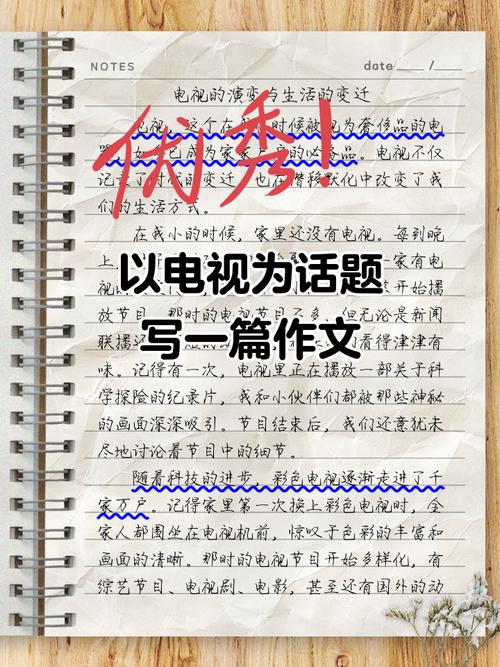 NOTES
date ___ / ___
电视的演变与生活的变迁
电视,这个在 时候被 为奢侈品的电
器,如 已成为家家户户的必备品。电视不仅
记 了时代的变迁,也在潜移默化中改变了我
们的生活方式。
优秀!
在我小的时候,家里还没有电视。每到晚
上, 一家有电
视 开始播
放节目。那时的电视节目不多,但无论是新闻
联播 看得津津有
味。记得有一次,电视里正在播放一部关于科
学探险的纪录片,我和小伙伴们都被那些神秘
的画面深深吸引。节目结束后,我们还意犹未
尽地讨论着节目中的细节。
以电视为话题
写一篇作文
随着科技的进步,彩色电视逐渐走进了千
家万户。记得家里第一次换上彩色电视时,全
家人都围坐在电视机前,惊叹于色彩的丰富和
画面的清晰。那时的电视节目开始多样化,有
综艺节目、电视剧、电影,甚至还有国外的动